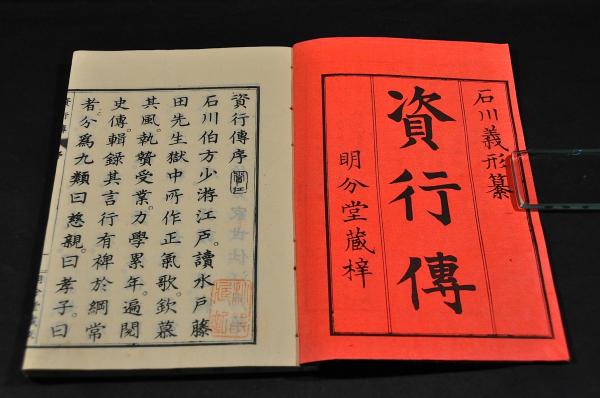 石川義形纂
資行傳
明分堂藏梓
資行傳序
石川伯方少游江戸。讀水戸藤
田先生獄中所作正氣歌。欽慕
其風。執贄受業。力學累年。遍閲
史傳。輯錄其言行有裨於綱常
者。分爲九類曰慈親。曰孝子。曰